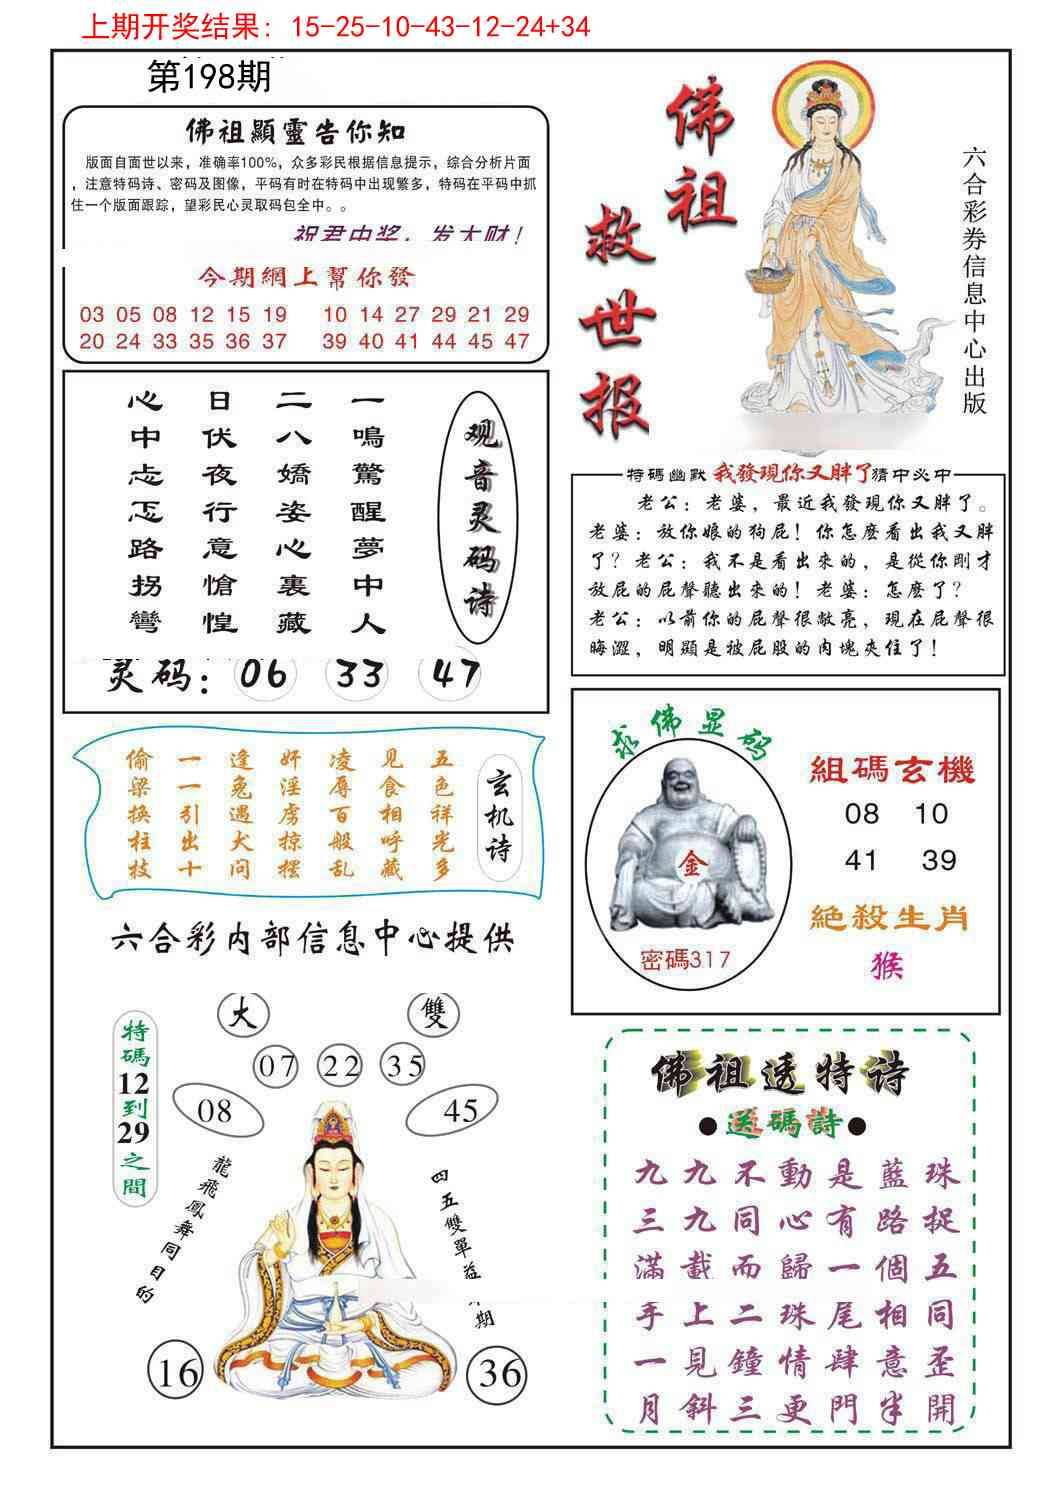 上期开奖结果：15-25-10-43-12-24+34
第198期
佛祖顯靈告你知
版面自面世以来，准确率100%，众多彩民根据信息提示，综合分析片面
，注意特码诗、密码及图像，平码有时在特码中出现繁多，特码在平码中抓
住一个版面跟踪，望彩民心灵取码包全中。。
祝君中奖，发大财！
今期網上幫你發
03 05 08 12 15 19 10 14 27 29 21 29
20 24 33 35 36 37 39 40 41 44 45 47
佛祖
救世报
六合彩券信息中心出版
观音灵码诗
一鳴驚醒夢中人
二八嬌姿心裏藏
日伏夜行意愴惶
心中忐忑路拐彎
灵码：06 33 47
特碼幽默 我發現你又胖了 猜中必中
老公：老婆，最近我發現你又胖了。
老婆：放你娘的狗屁！你怎麼看出我又胖
了？老公：我不是看出來的，是從你剛才
放屁的屁聲聽出來的！老婆：怎麼了？
老公：以前你的屁聲很敞亮，現在屁聲很
晦澀，明顯是被屁股的肉塊夾住了！
玄机诗
五色祥光多
见食相呼藏
凌辱百般乱
奸淫虏掠摆
逢兔遇犬问
一一引出十
偷梁换柱技
求佛显码
金
密碼317
組碼玄機
08 10
41 39
絕殺生肖
猴
六合彩内部信息中心提供
大 雙
07 22 35
08 45
特碼12到29之間
龍飛鳳舞同目的
四五雙單益 期
16 36
佛祖透特诗
●送碼詩●
九九不動是藍珠
三九同心有路捉
滿載而歸一個五
手上二珠尾相同
一見鐘情肆意歪
月斜三更門半開